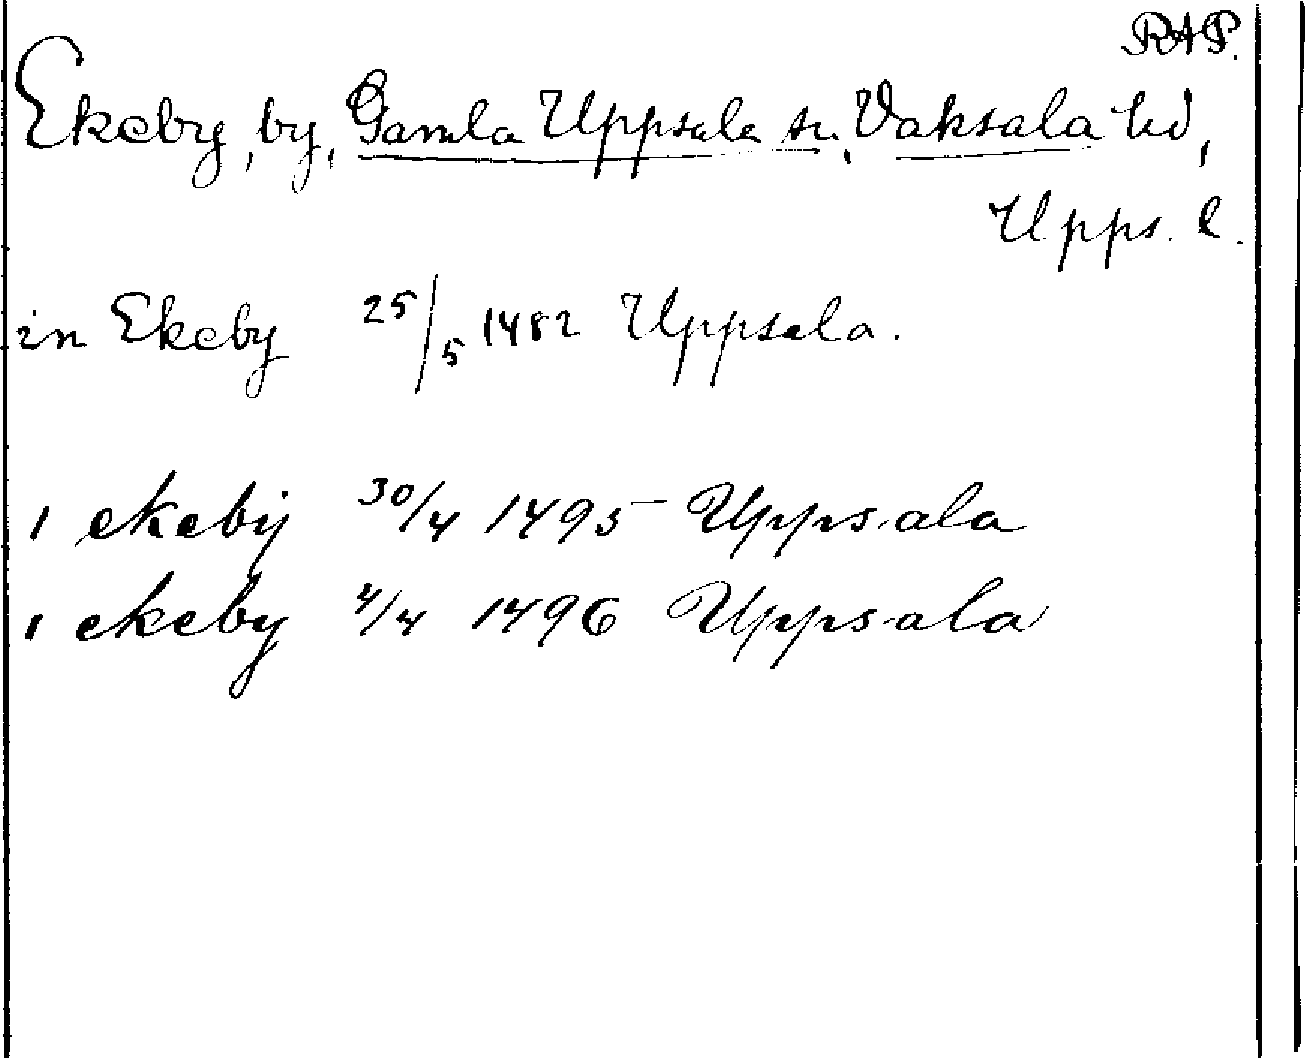 RAP.
Ekeby, by, Gamla Uppsala sn, Vaksala hd,
Upps. l.
in Ekeby 25/5 1482 Uppsala.
i ekeby 30/4 1495 Uppsala
i ekeby 4/4 1496 Uppsala